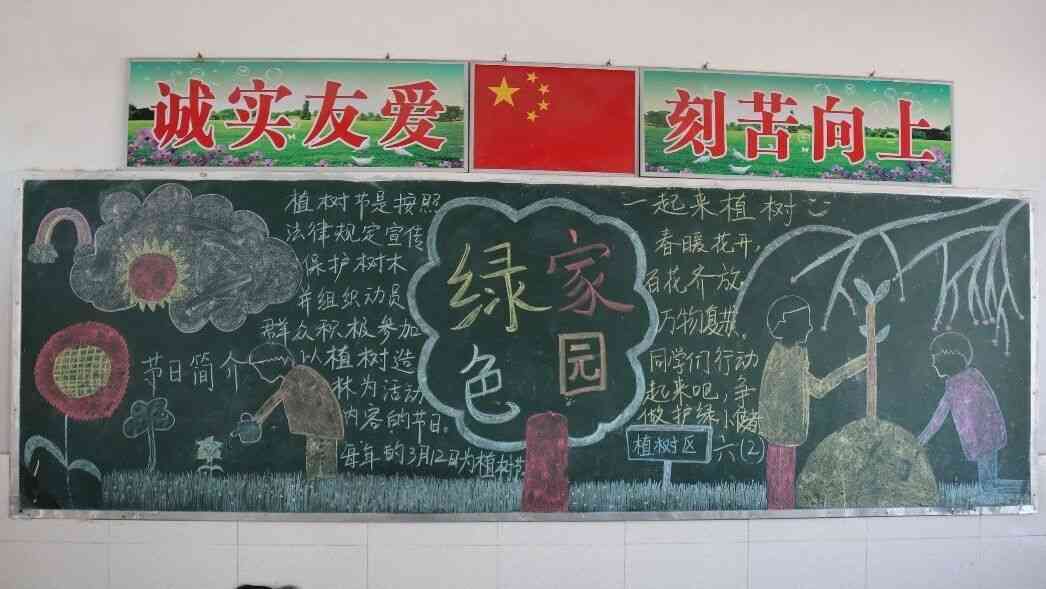 诚实友爱
刻苦向上
节日简介
植树节是按照
法律规定宣传
保护树木
并组织动员
群众积极参加
以植树造
林为活动
内容的节日。
每年的3月12日为植树节
绿色
家园
一起来植树
春暖花开,
百花齐放,
万物复苏,
同学们行动
起来吧,争
做护绿小
植树区
六(2)